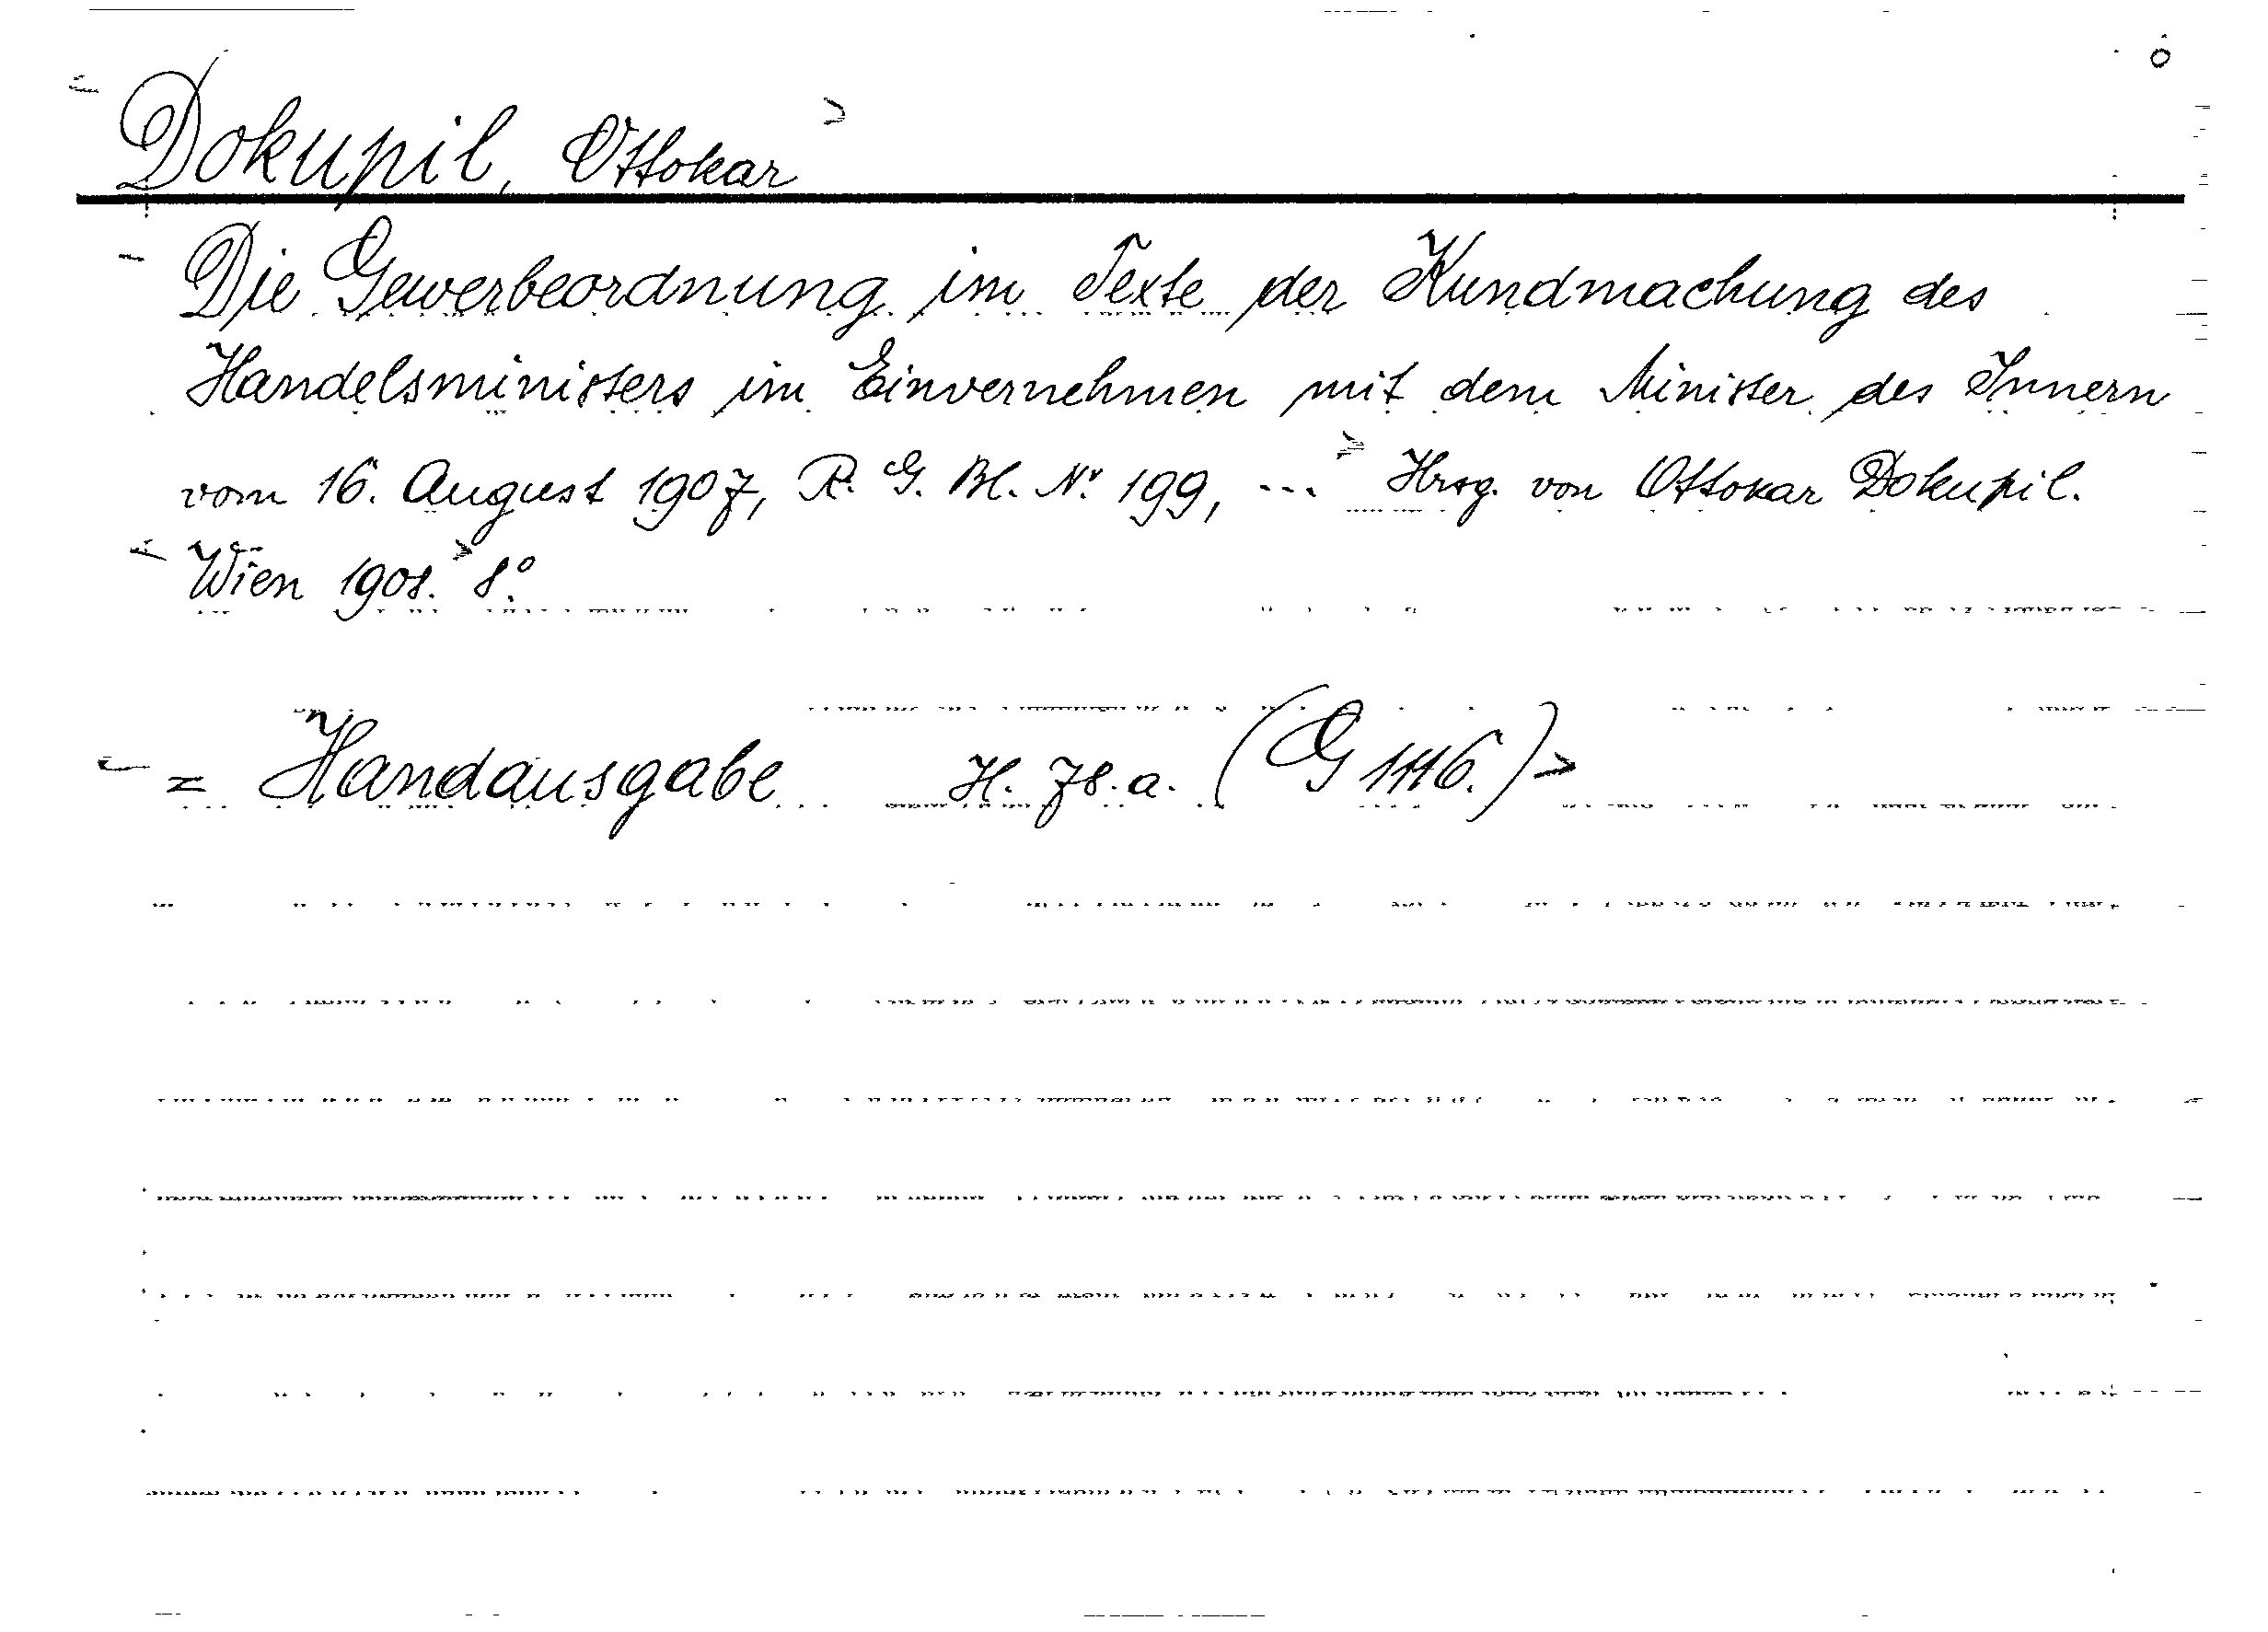 < Dokupil, Ottokar >
- Die Gewerbeordnung im Texte der Kundmachung des
Handelsministers im Einvernehmen mit dem Minister des Innern
vom 16. August 1907, R. G. Bl. Nr. 199, ... > Hrsg. von Ottokar Dokupil.
< Wien 1908. > 8°.
< = Handausgabe H. 78.a. (G 1116.) >